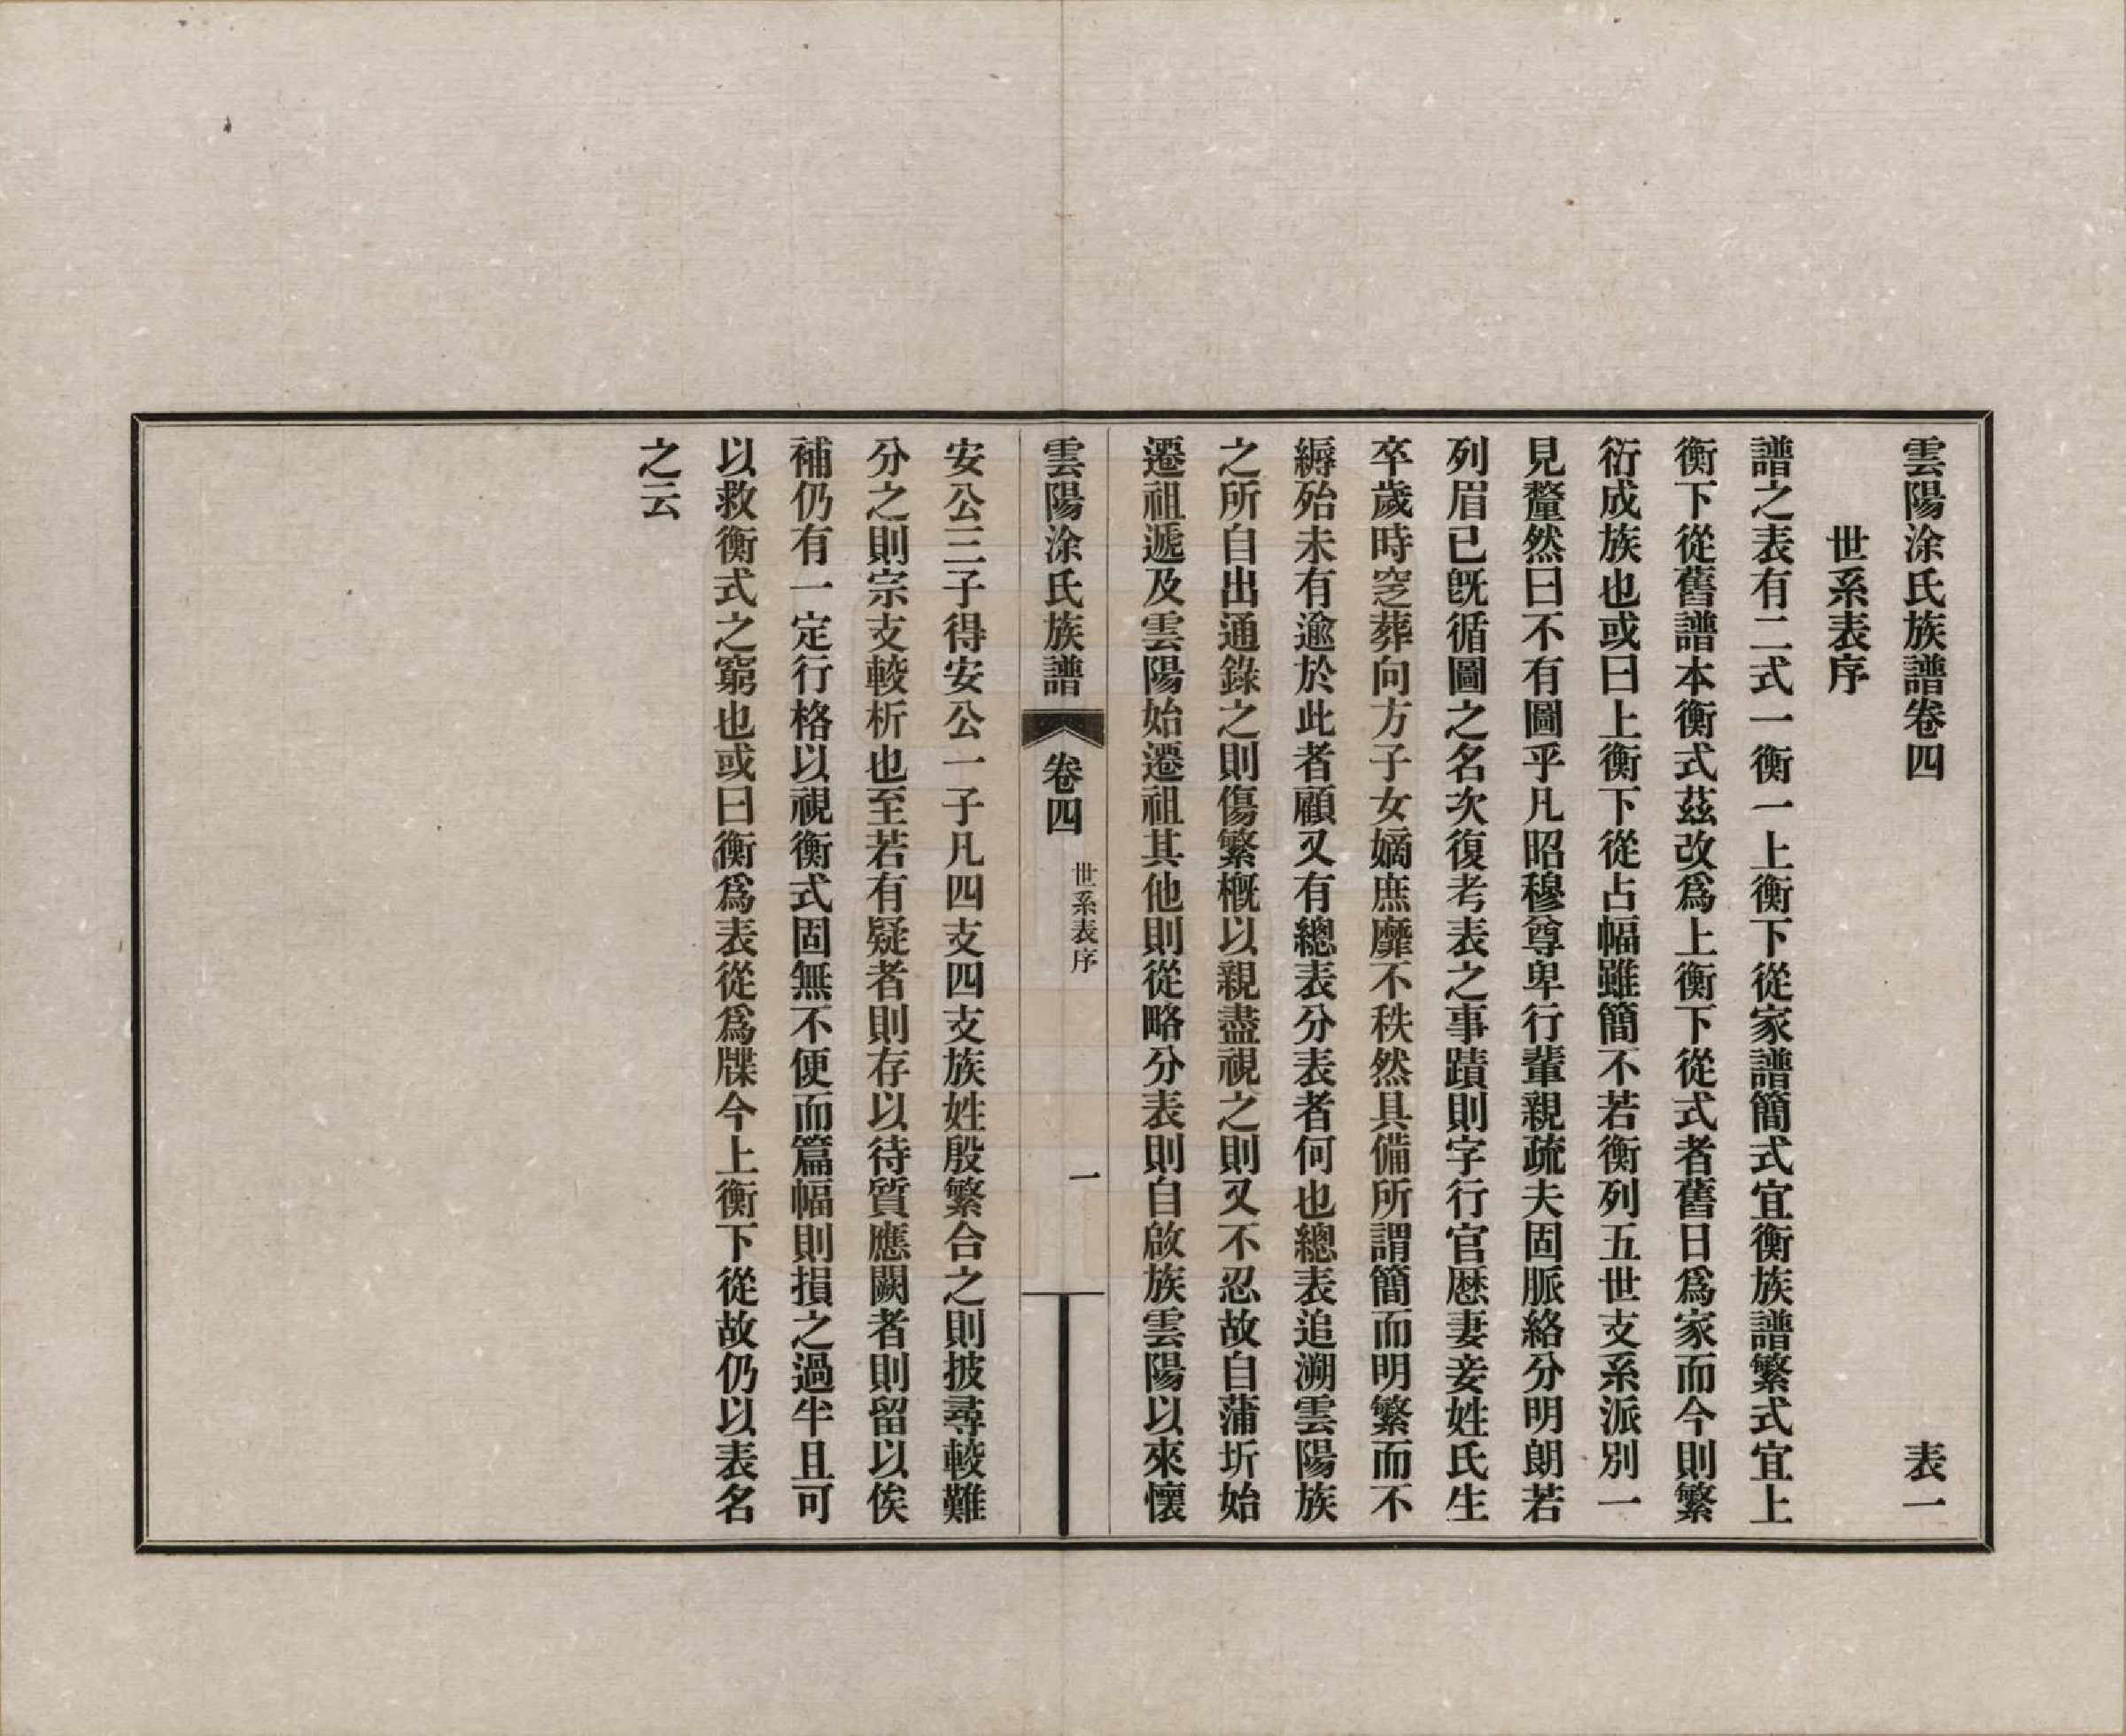 雲陽涂氏族譜卷四　表一
世系表序
譜之表有二式一衡一上衡下從家譜簡式宜衡族譜繁式宜上
衡下從舊譜本衡式茲改爲上衡下從式者舊日爲家而今則繁
衍成族也或曰上衡下從占幅雖簡不若衡列五世支系派別一
見釐然曰不有圖乎凡昭穆尊卑行輩親疏夫固脈絡分明朗若
列眉已旣循圖之名次復考表之事蹟則字行官歷妻妾姓氏生
卒歲時窆葬向方子女嫡庶靡不秩然具備所謂簡而明繁而不
縟殆未有逾於此者顧又有總表分表者何也總表追溯雲陽族
之所自出通錄之則傷繁槪以親盡視之則又不忍故自蒲圻始
遷祖遞及雲陽始遷祖其他則從略分表則自啟族雲陽以來懷
雲陽涂氏族譜　卷四　世系表序　一
安公三子得安公一子凡四支四支族姓殷繁合之則披尋較難
分之則宗支較析也至若有疑者則存以待質應闕者則留以俟
補仍有一定行格以視衡式固無不便而篇幅則損之過半且可
以救衡式之窮也或曰衡爲表從爲牒今上衡下從故仍以表名
之云